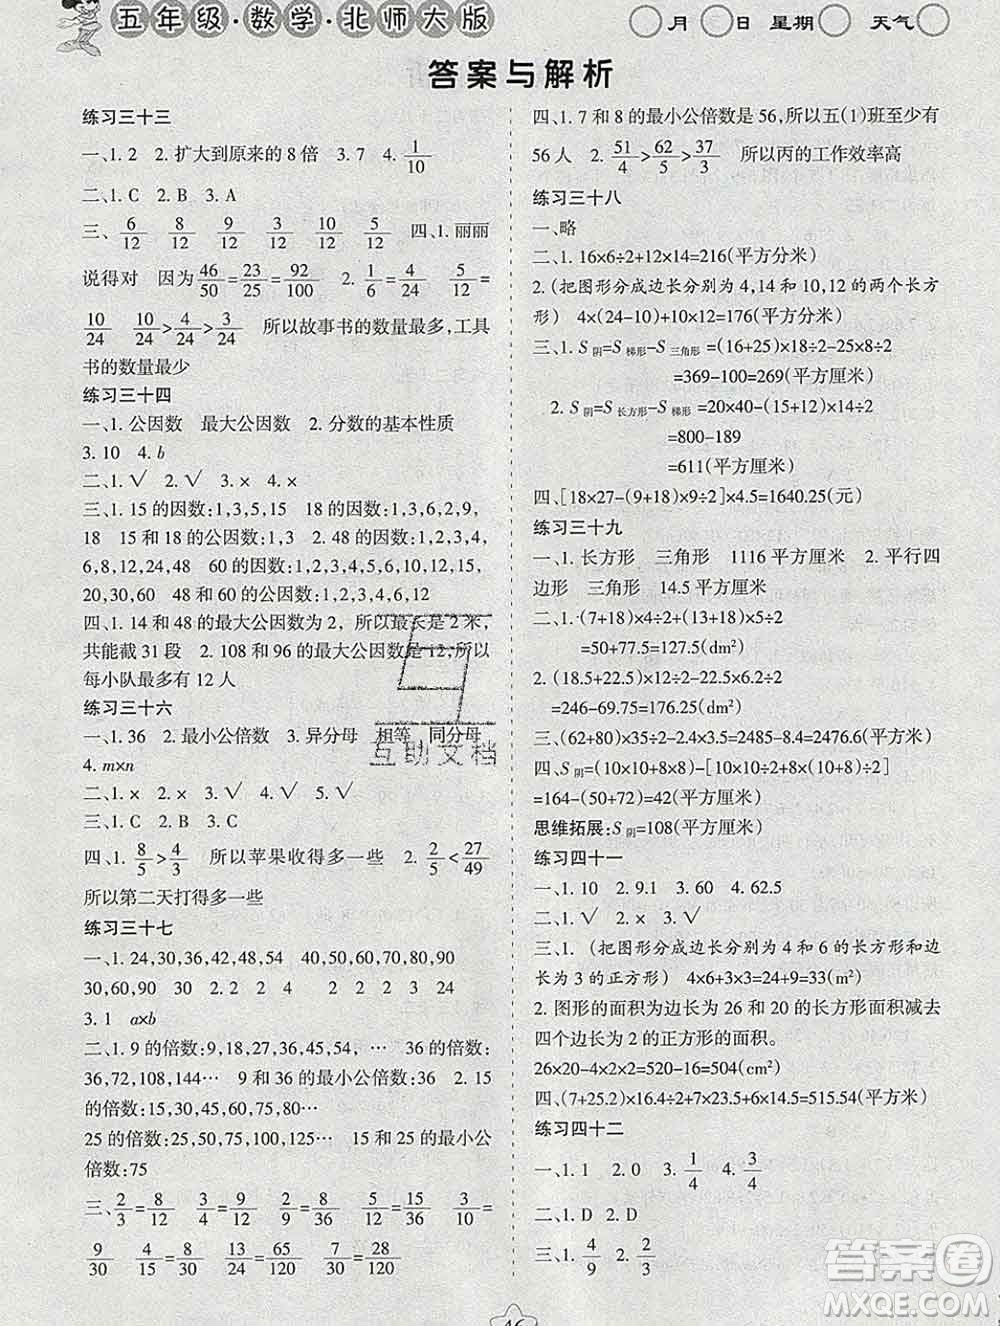 五年级·数学·北师大版
月 日 星期 天气
答案与解析
练习三十三
一、1. 2 2. 扩大到原来的 8 倍 3. 7 4. 1/10
二、1. C 2. B 3. A
三、6/12 8/12 9/12 3/12 10/12 5/12 四、1. 丽丽
说得对 因为46/50=23/25=92/100 2. 1/6=4/24 5/12=
10/24 15/24>4/24>3/24 所以故事书的数量最多,工具
书的数量最少
练习三十四
一、1. 公因数 最大公因数 2. 分数的基本性质
3. 10 4. b
二、1. √ 2. √ 3. × 4. √
三、1. 15 的因数:1,3,5,15 18 的因数:1,3,6,2,9,
18 15 和 18 的公因数:1,3 2. 48 的因数:1,2,3,4,
6,8,12,24,48 60 的因数:1,2,3,4,5,6,10,12,15,
20,30,60 48 和 60 的公因数:1,2,3,4,6,12
四、1. 14 和 48 的最大公因数为 2，所以最长是 2 米，
共能截 31 段 2. 108 和 96 的最大公因数是 12,所以
每小队最多有 12 人
练习三十六
一、1. 36 2. 最小公倍数 3. 异分母 相等 同分母
4. m×n
二、1. × 2. × 3. √ 4. √
三、1. C 2. B 3. C
四、1. 8/5>4/3 所以苹果收得多一些 2. 2/5<27/49
所以第二天打得多一些
练习三十七
一、1. 24,30,36,45,54 40,50,60,70,80,90
30,60,90 2. 48 24
3. 1 a×b
二、1. 9 的倍数:9,18,27,36,45,54, ··· 36 的倍数:
36,72,108,144··· 9 和 36 的最小公倍数:36 2. 15
的倍数:15,30,45,60,75,90,105···
25 的倍数:25,50,75,100,125··· 15 和 25 的最小公
倍数:75
三、2/3=8/12 9/12=9/12 2/9=8/36 15/36=15/36 4/10=12/30 3/10=
9/30 9/36=9/36 20/36=20/36 27/30=27/30 28/30=28/30
四、1. 7 和 8 的最小公倍数是 56,所以五(1)班至少有
56 人 2. 51/4>62/5>37/3 所以丙的工作效率高
练习三十八
一、略
二、1. 16×6÷2+12×14=216(平方分米)
2. (把图形分成边长分别为 4,14 和 10,12 的两个长方
形) 4×(24-10)+10×12=176(平方分米)
三、1. S阴=S梯形-S三角形=(16+25)×18÷2-25×8÷2
=369-100=269(平方厘米)
2. S阴=S长方形-S梯形=20×40-(15+12)×14÷2
=800-189
=611(平方厘米)
四、[18×27-(9+18)×9÷2]×4.5=1640.25(元)
练习三十九
一、1. 长方形 三角形 1116 平方厘米 2. 平行四
边形 三角形 14.5 平方厘米
二、1. (7+18)×4÷2+(7+24)×5÷2
=50+77.5=127.5(dm²)
2. (18.5+22.5)×12÷2-22.5×6.2÷2
=246-69.75=176.25(dm²)
三、(62+80)×32÷2+(24+32)×(80-73)÷2=2476(cm²)
四、S阴=(10×10+8×8)-[10×10÷2+(10+8)×8÷2]
=164-(50+72)=42(平方厘米)
思维拓展:S阴=108(平方厘米)
练习四十一
一、1. 10 2. 9.1 3. 60 4. 62.5
二、1. √ 2. × 3. √
三、1. (把图形分成边长分别为 4 和 6 的长方形和边
长为 3 的正方形) 4×6+3×3=24+9=33(m²)
2. 图形的面积为边长为 26 和 20 的长方形面积减去
四个边长为 2 的正方形的面积。
26×20-4×2×2=520-16=504(cm²)
四、(7+25.2)×16.4÷2+7×23.5+6×14=515.54(平方厘米)
练习四十二
一、1. 1 2. 0 3. 1/4 4. 3/4
二、1. D 2. D
三、1. 4/9 2. 2/3
46
互助文档
答案圈
MXQE.COM